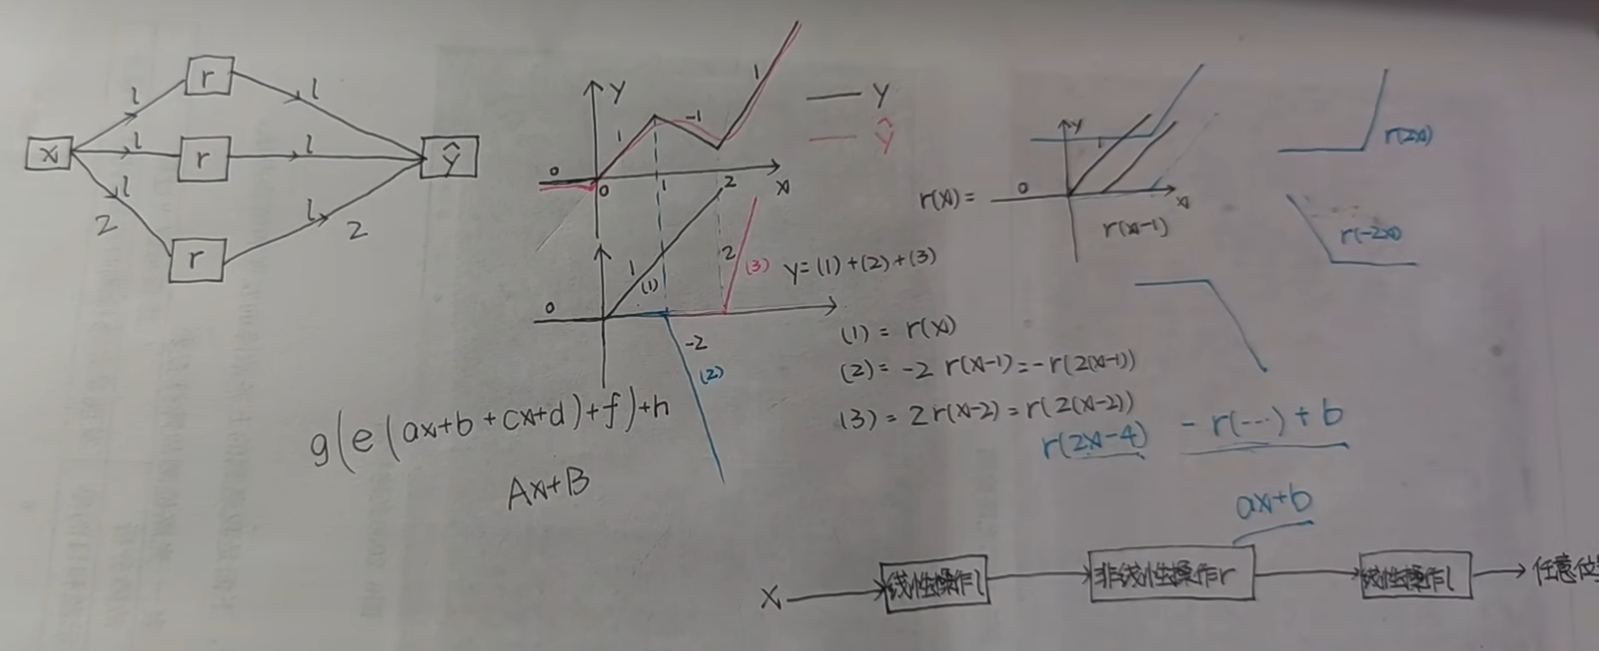 x
l
r
l
l
r
l
l
2
r
l
2
ŷ
Y
0
1
-1
1
0
1
2
x
0
1
(1)
2
(3)
-2
(2)
Y
Ŷ
r(x)=
0
Y
1
x
r(x-1)
r(2x)
r(-2x)
y=(1)+(2)+(3)
(1) = r(x)
(2) = -2 r(x-1)=-r(2(x-1))
(3) = 2r(x-2)=r(2(x-2))
r(2x-4)
-r(...)+b
g(e(ax+b+cx+d)+f)+h
Ax+B
ax+b
X
线性操作l
非线性操作r
线性操作l
任意